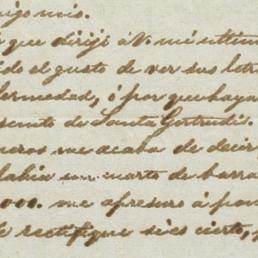 igo mio.
que dirijí á V. mi últim
ido el gusto de ver sus letr
fermedad, ó por que haya
sento de Santa Gertrudis.
neros me acaba de decir
habia un cuarto de barra
000. me apresuro á pon
rectifique si es cierto,